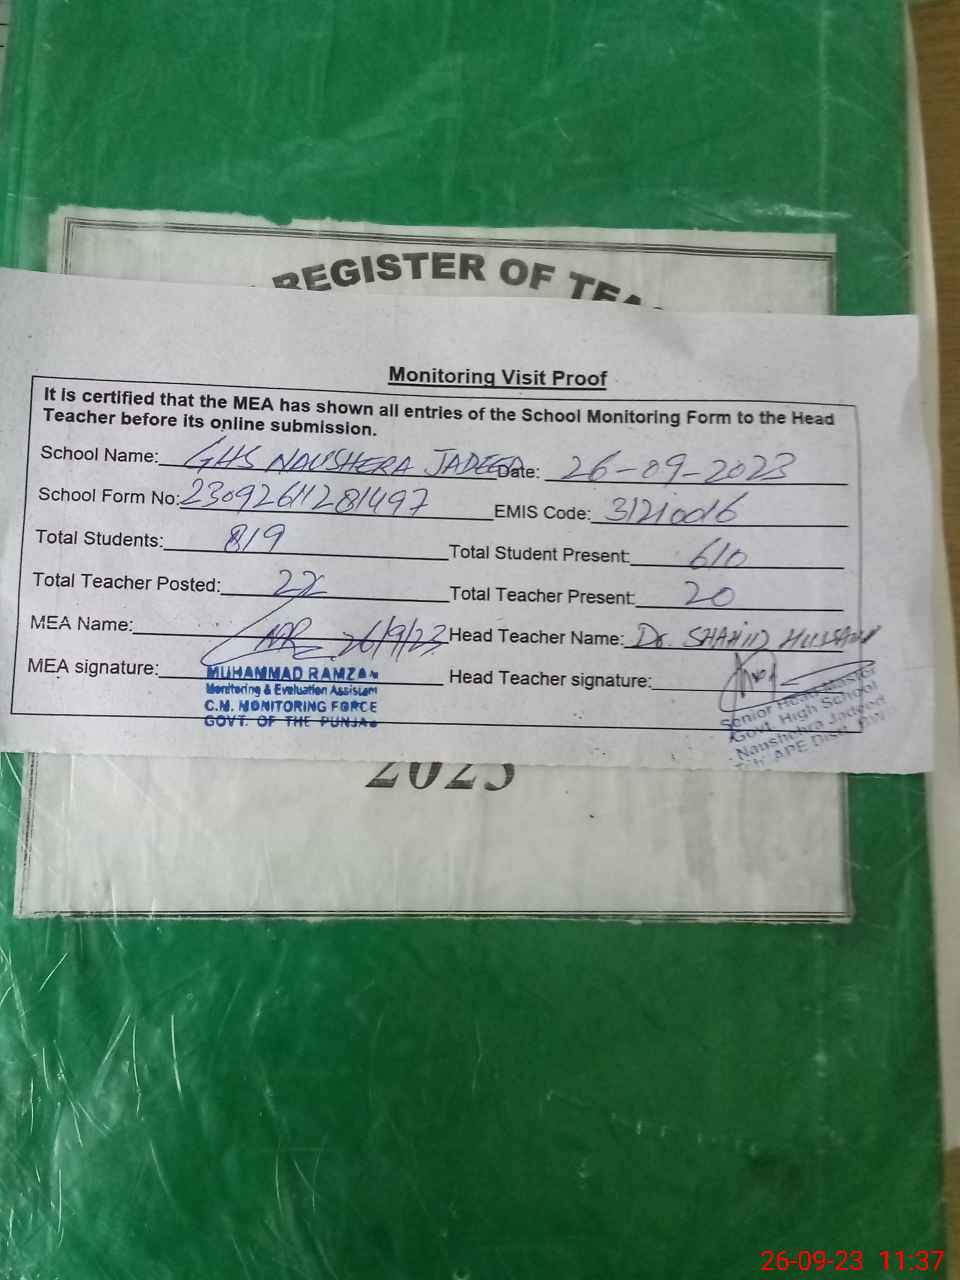 REGISTER OF TEA
Monitoring Visit Proof
It is certified that the MEA has shown all entries of the School Monitoring Form to the Head
Teacher before its online submission.
School Name: GHS NAUSHERA JADEED Date: 26-09-2023
School Form No: 23092611281497 EMIS Code: 31210016
Total Students: 819 Total Student Present: 610
Total Teacher Posted: 22 Total Teacher Present: 20
MEA Name: 26/9/23 Head Teacher Name: Dr. SHAHID HUSSAIN
MEA signature: Head Teacher signature:
MUHAMMAD RAMZAN
Monitoring & Evaluation Assistant
C.M. MONITORING FORCE
GOVT. OF THE PUNJAB
Senior Head Master
Govt. High School
Naushehra Jadeed
Teh. APE Dist.
2023
26-09-23 11:37